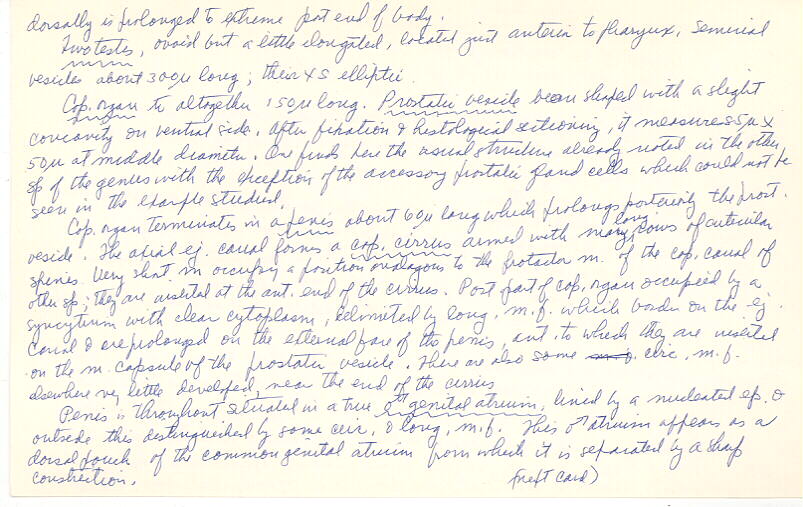 dorsally is prolonged to extreme post end of body.
Two testes, ovoid but a little elongated, located just anterior to pharynx. Seminal
vesicles about 300µ long; their XS elliptic.
Cop. organ altogether 150µ long. Prostatic vesicle bean shaped with a slight
concavity on ventral side. After fixation & histological sectioning, it measures 85µ X
50µ at middle diameter. One finds here the usual structure already noted in the other
sp of the genus with the exception of the accessory prostatic gland cells which could not be
seen in the example studied.
Cop. organ terminates in a penis about 60µ long which prolongs posteriorly the prost.
vesicle. The axial ej. canal forms a cop. cirrus armed with many long rows of cuticular
spines. Very short m occupy a position analagous to the protractor m. of the cop. canal of
other sp; they are inserted at the ant. end of the cirrus. Post part of cop. organ occupied by a
syncytium with clear cytoplasm, delimited by long. m.f. which border on the ej.
canal & are prolonged on the external face of the penis, ant. to which they are inserted
on the m. capsule of the prostatic vesicle. There are also some circ. m.f.
elsewhere very little developed, near the end of the cirrus
Penis is throughout situated in a true ♂ genital atrium, lined by a nucleated ep. &
outside this distinguished by some circ. & long. m.f. This ♂ atrium appears as a
dorsal pouch of the common genital atrium from which it is separated by a sharp
constriction. (next card)